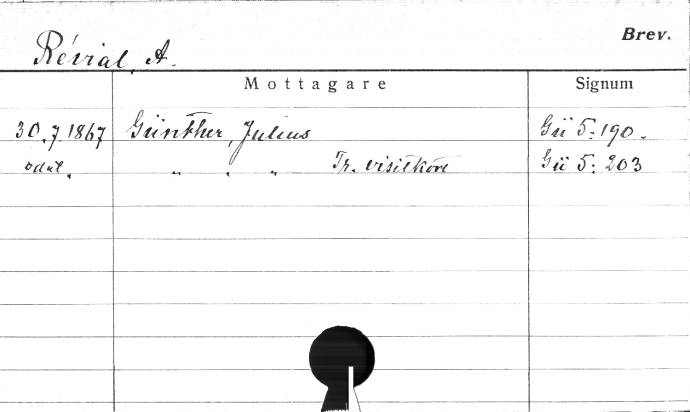 Brev.
Révial, A.
Mottagare Signum
30.7.1867 Günther, Julius Gü 5:190.
odat. " " " Tr. visitkort Gü 5:203